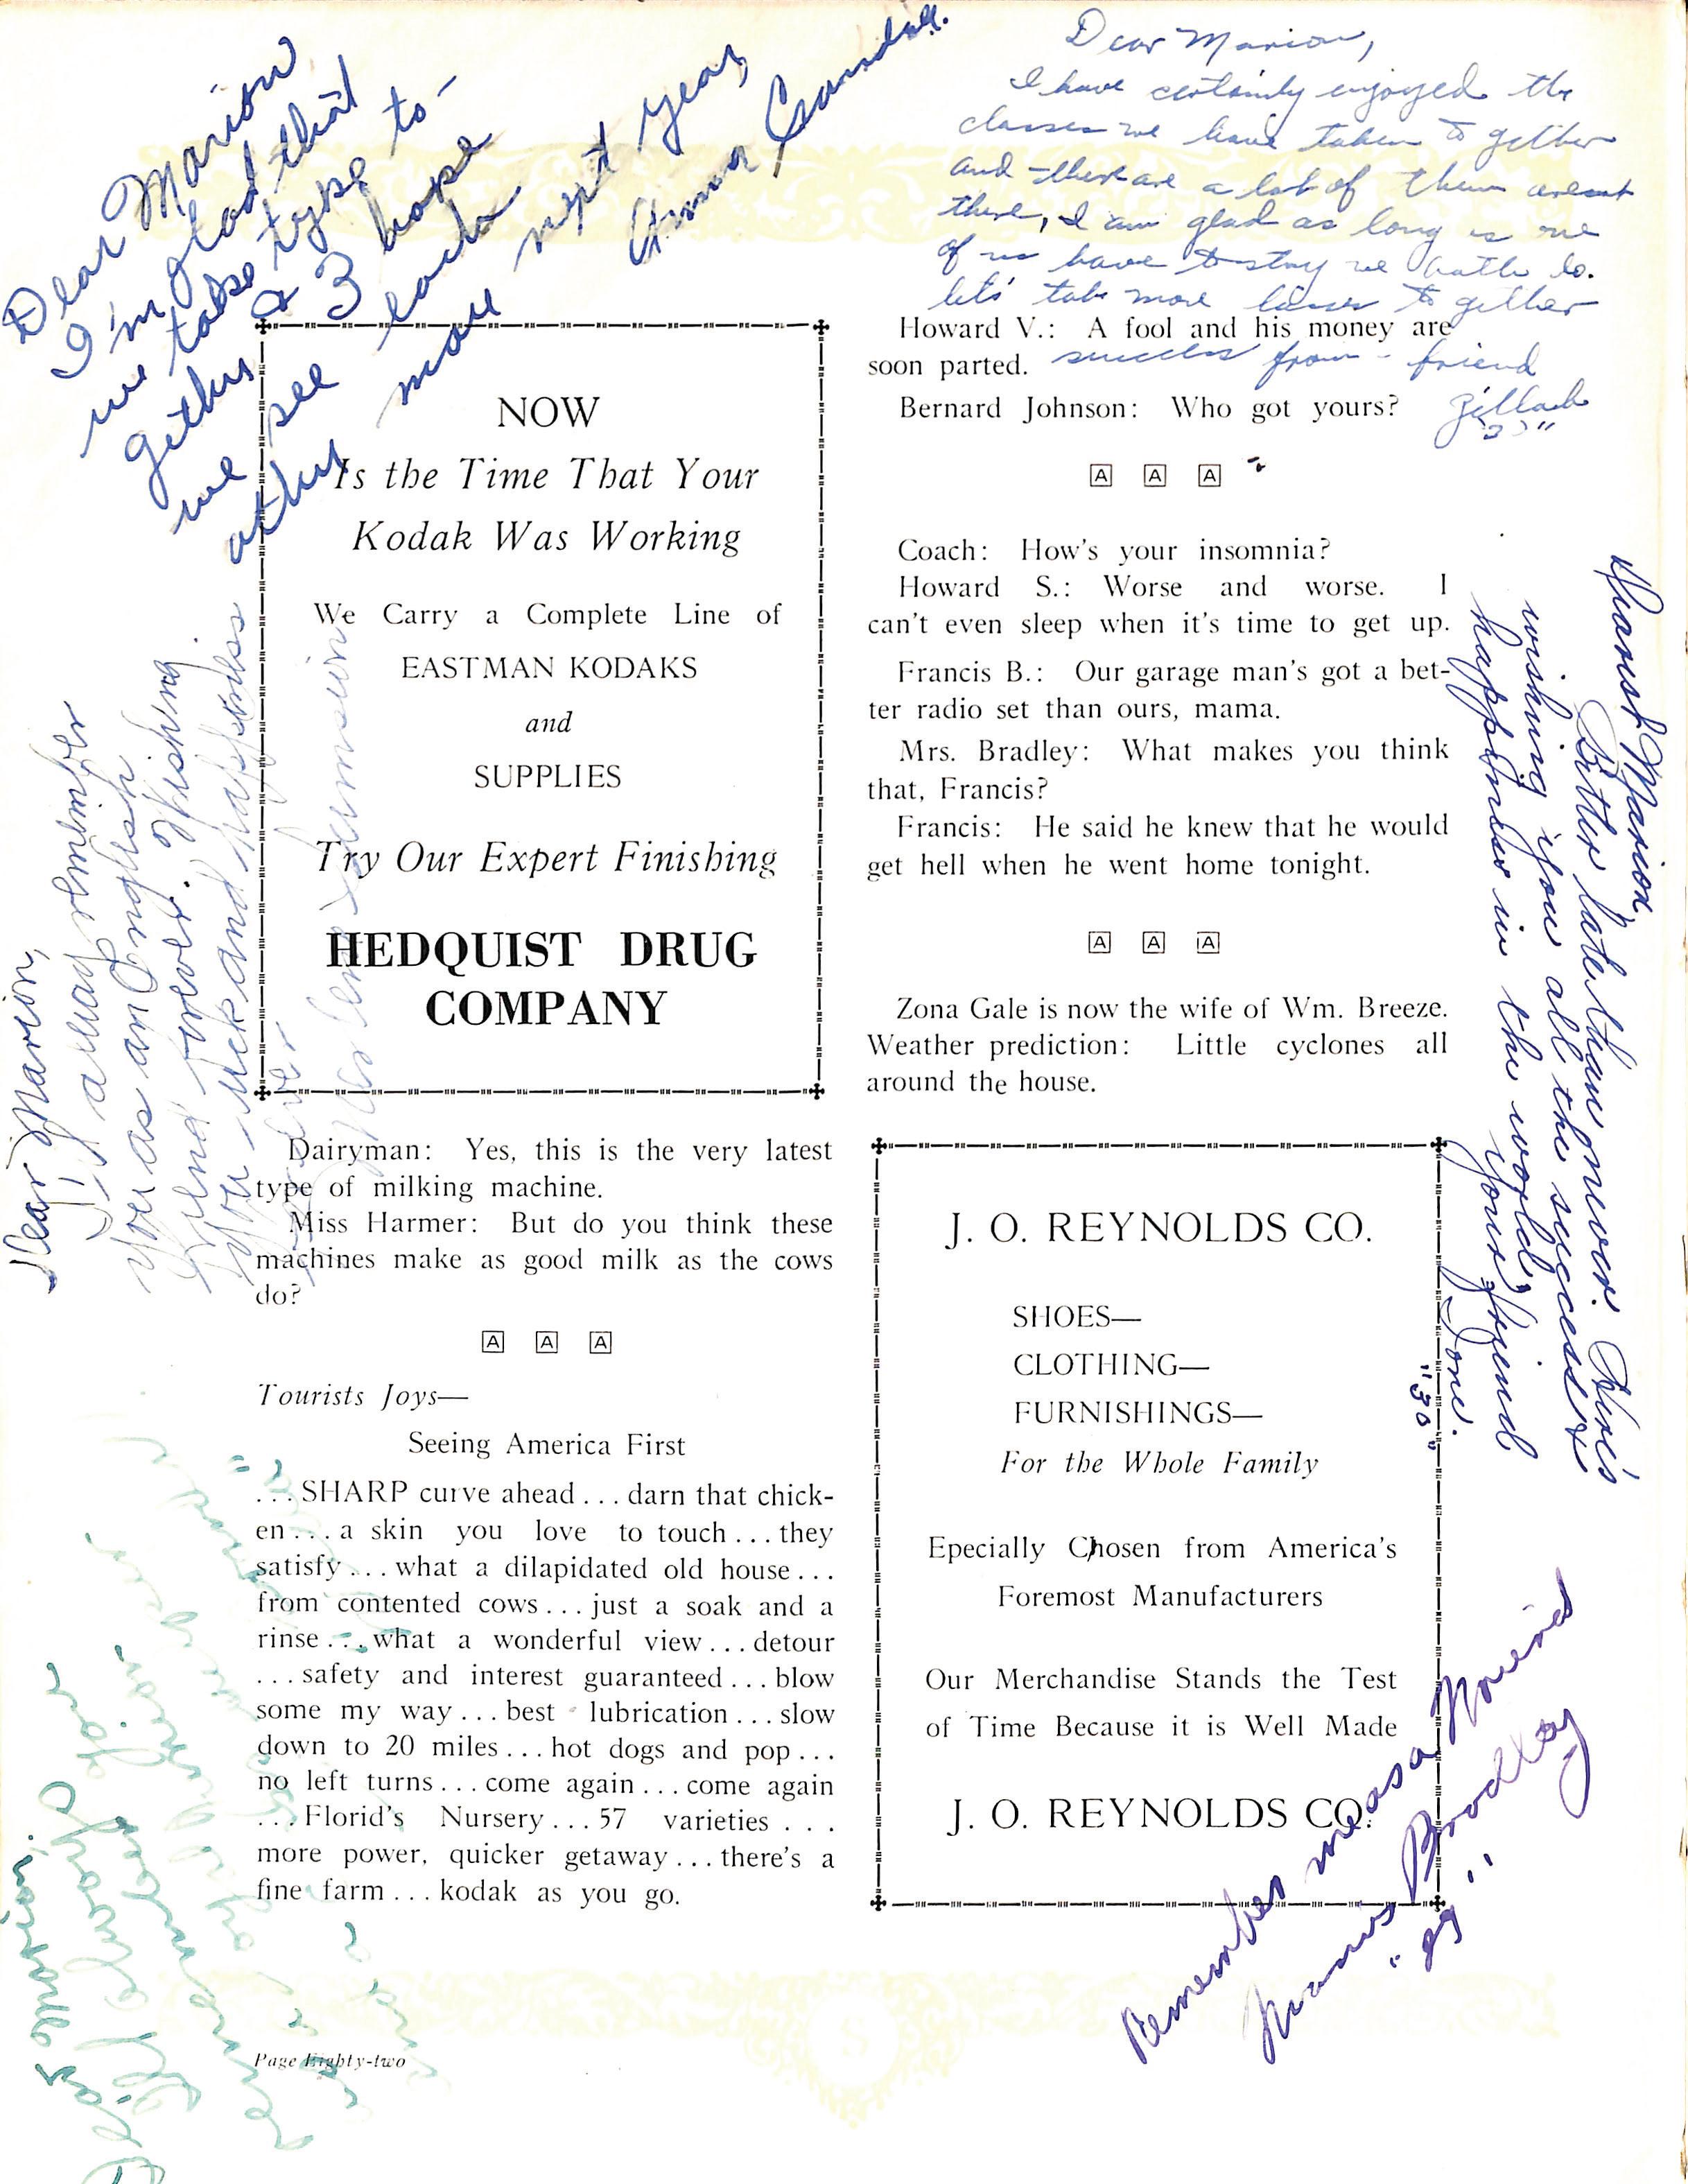 Dear Marion
I'm glad that
we take type to-
gether & I hope
we see each
other more next year,
Anna
Dear Marion,
I have certainly enjoyed the
classes we have taken to gether
and there are a lot of them arent
there, I am glad as long as one
of us have to stay we both do.
let's take more to gether
success from - friend
Zillah
Howard V.: A fool and his money are
soon parted.
Bernard Johnson: Who got yours?
A A A
Coach: How's your insomnia?
Howard S.: Worse and worse. I
can't even sleep when it's time to get up.
Francis B.: Our garage man's got a bet-
ter radio set than ours, mama.
Mrs. Bradley: What makes you think
that, Francis?
Francis: He said he knew that he would
get hell when he went home tonight.
A A A
Zona Gale is now the wife of Wm. Breeze.
Weather prediction: Little cyclones all
around the house.
NOW
Is the Time That Your
Kodak Was Working
We Carry a Complete Line of
EASTMAN KODAKS
and
SUPPLIES
Try Our Expert Finishing
HEDQUIST DRUG
COMPANY
Dear Marion,
I'll always remember
you as an English
friend forever. Wishing
you luck and happiness
Dairyman: Yes, this is the very latest
type of milking machine.
Miss Harmer: But do you think these
machines make as good milk as the cows
do?
A A A
Tourists Joys—
Seeing America First
...SHARP curve ahead...darn that chick-
en...a skin you love to touch...they
satisfy...what a dilapidated old house...
from contented cows...just a soak and a
rinse...what a wonderful view...detour
...safety and interest guaranteed...blow
some my way...best lubrication...slow
down to 20 miles...hot dogs and pop...
no left turns...come again...come again
...Florid's Nursery...57 varieties...
more power, quicker getaway...there's a
fine farm...kodak as you go.
J. O. REYNOLDS CO.
SHOES—
CLOTHING—
FURNISHINGS—
For the Whole Family
Epecially Chosen from America's
Foremost Manufacturers
Our Merchandise Stands the Test
of Time Because it is Well Made
J. O. REYNOLDS CO.
Dearest Marion,
Better late than never. Here's
wishing you all the success &
happiness in the world,
Your friend
Ione.
"30"
Remember me as a friend
Francis Bradley
"29"
Page Eighty-two